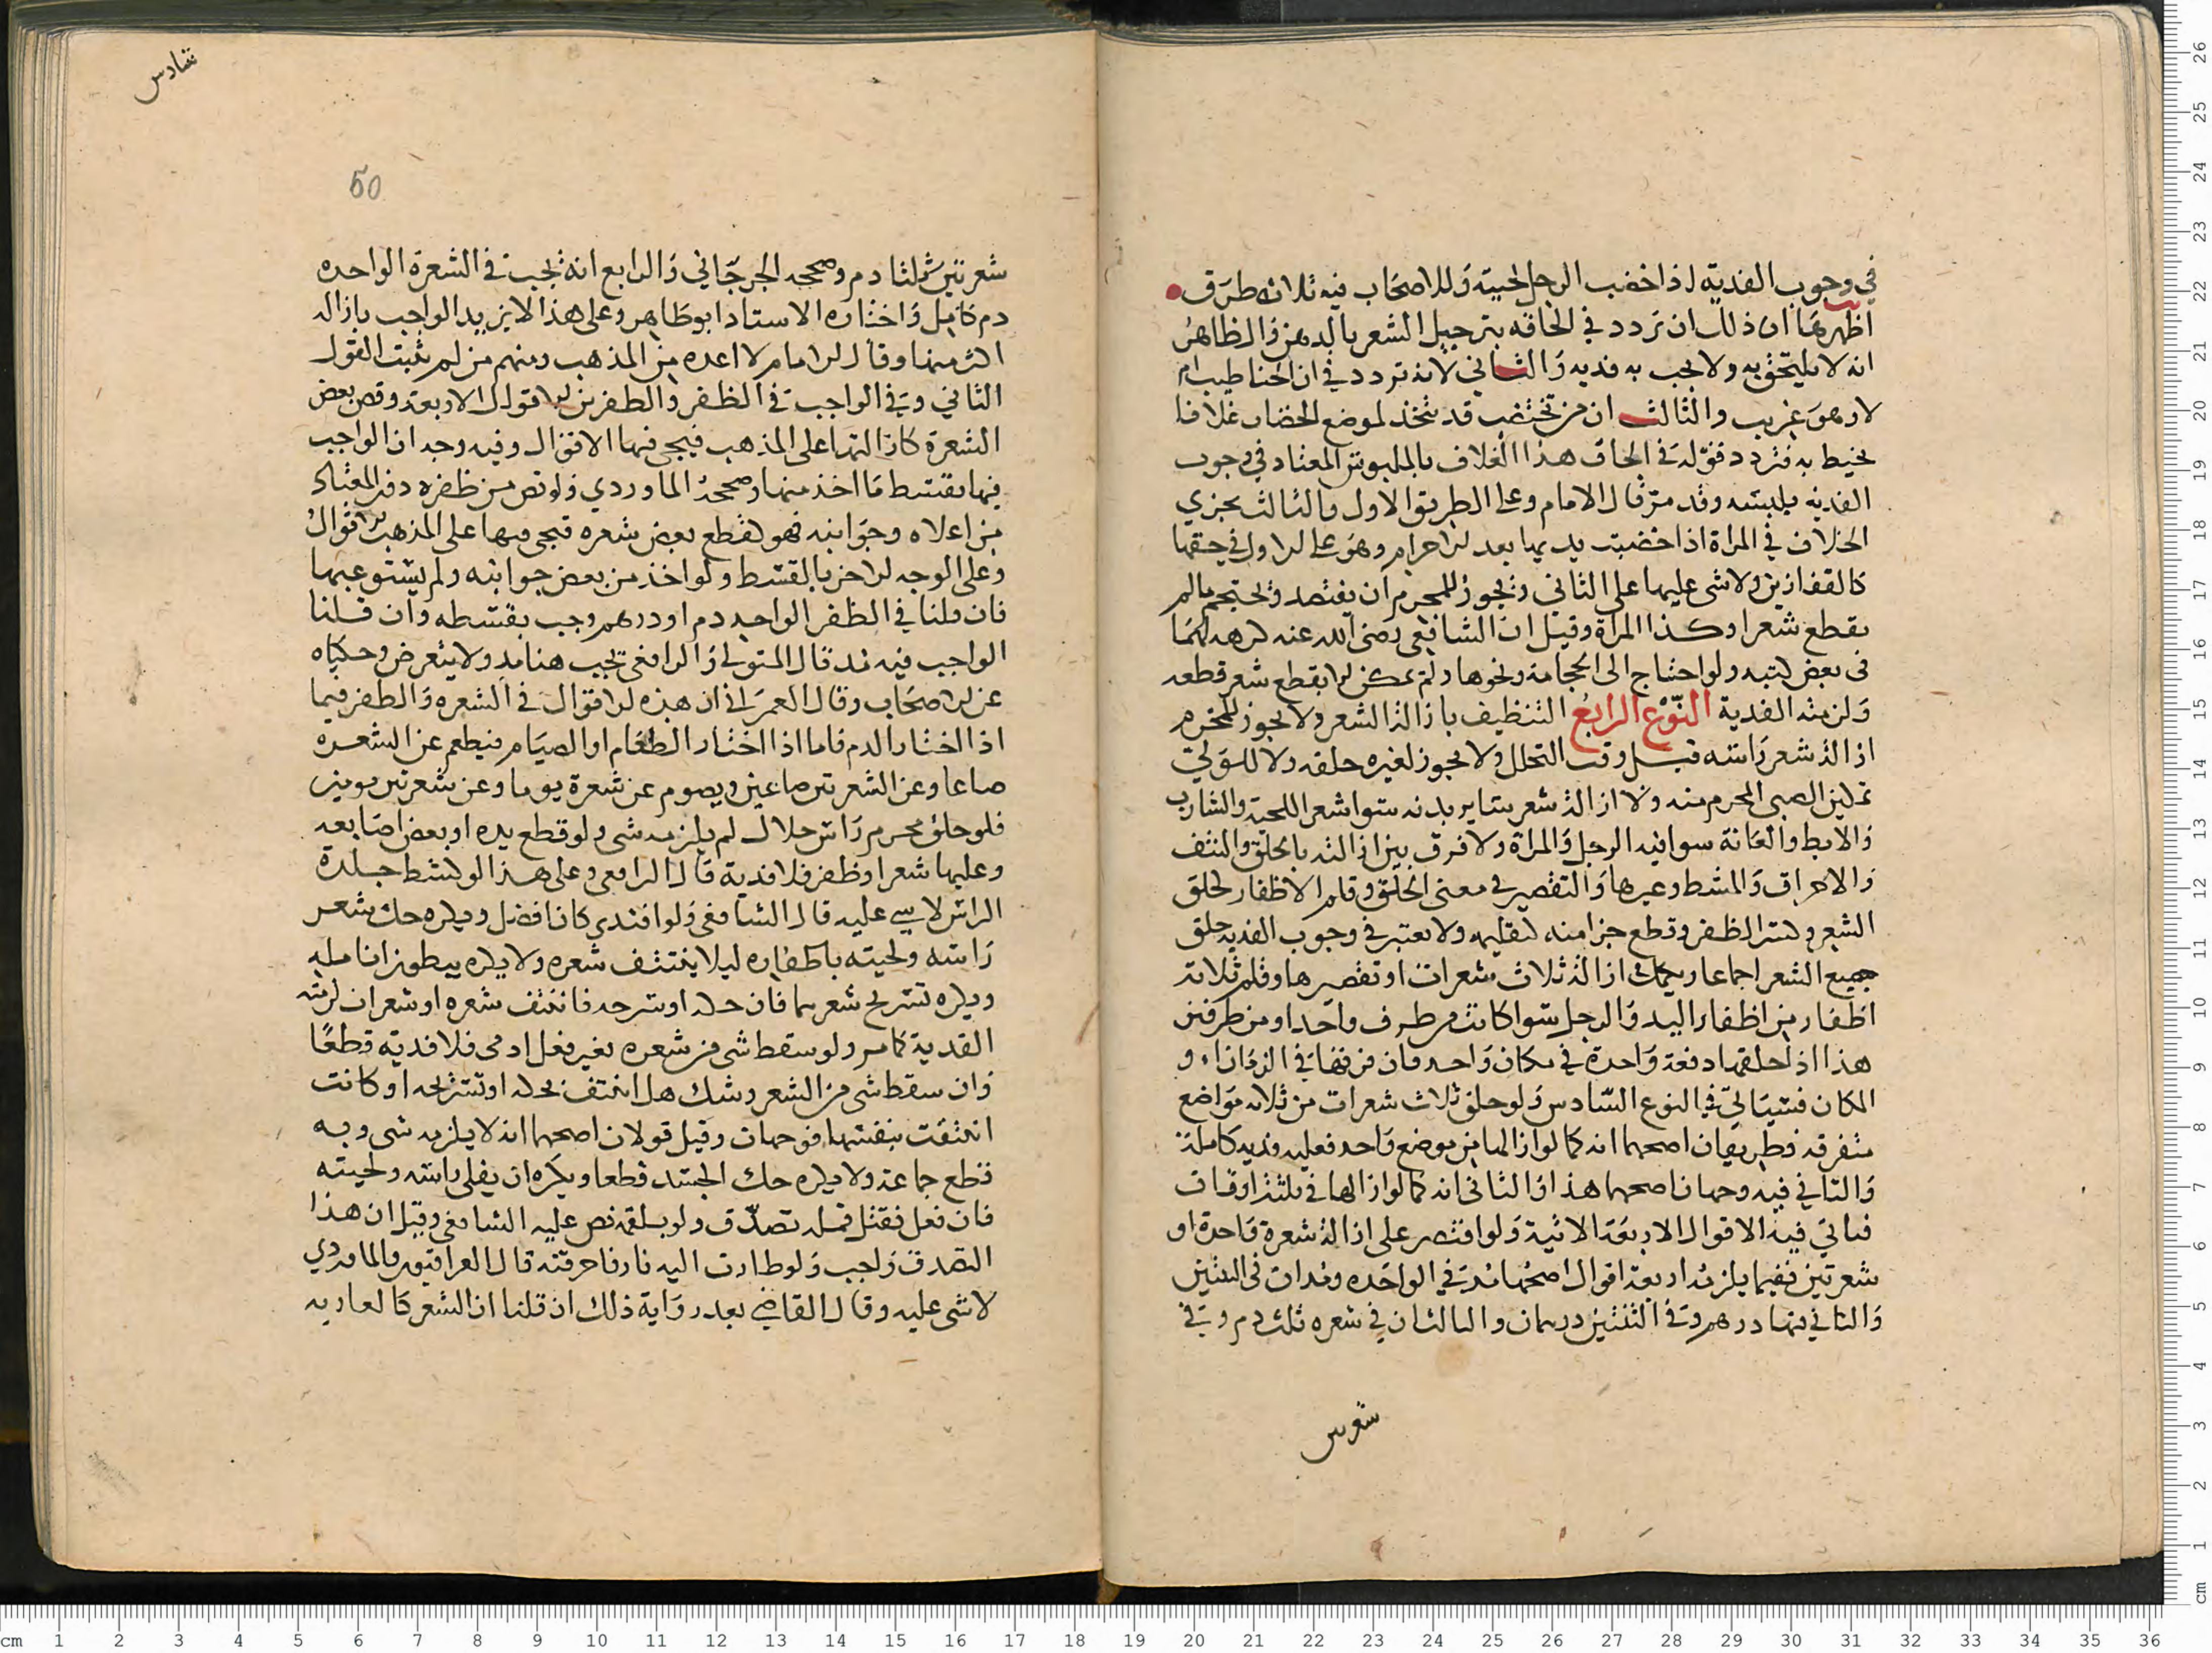 في وجوب الفدية اذا خضب الرجل لحيته وللاصحاب فيه ثلاث طرق
اظهرها ان ذلك ان تردد في الحاقه بترجيل الشعر بالدهن والظاهر
انه لا يلتحق به ولا يجب به فديه والثاني لانه تردد في ان الحنا طيب ام
لا وهو غريب والثالث ان من تختضب قد يتخذ لموضع الخضاب غلافا
يحيط به فتردد قوله في الحاق هذا الغلاف بالملبوس المعتاد في وجوب
الفديه بلبسه وقد مر قال الامام وعلى الطريق الاول والثالث يجري
الخلاف في المراة اذا خضبت يديها بعد الاحرام وهو على الاول في حقها
كالقفازين ولا شي عليها على الثاني ويجوز للمحرم ان يفتصد ويحتجم مالم
يقطع شعرا وكذا المراة وقيل ان الشافعي رضي الله عنه كرهه لهما
في بعض كتبه ولو احتاج الى الحجامة ونحوها ولم يمكن الا بقطع شعر قطعه
ولزمته الفدية النوع الرابع التنظيف بازالة الشعر ولا يجوز للمحرم
ازالة شعر راسه قبل وقت التحلل ولا يجوز لغيره حلقه ولا للولي
تمكين الصبي المحرم منه ولا ازالة شعر ساير بدنه سوا شعر اللحية والشارب
والابط والعانة سوا فيه الرجل والمراة ولا فرق بين ازالته بالحلق والنتف
والاحراق والمشط وغيرها والتقصير في معنى الحلق وقلم الاظفار كحلق
الشعر وكسر الظفر وقطع جزا منه كتقليمه ولا يعتبر في وجوب الفديه حلق
جميع الشعر اجماعا ويكمل ازالة ثلاث شعرات او تقصيرها وقلم ثلاثة
اظفار من اظفار اليد والرجل سوا كانت من طرف واحد او من طرفين
هذا اذا حلقها دفعة واحدة في مكان واحد فان فرقها في الزمان او
المكان فسياتي في النوع السادس ولو حلق ثلاث شعرات من ثلاثه مواضع
متفرقه فطريقان اصحهما انه كما لو ازالها من موضع واحد فعليه فديه كاملة
والثاني فيه وجهان اصحهما هذا والثاني انه كما لو ازالها في ثلثة اوقات
فياتي فيه الاقوال الاربعة الاتية ولو اقتصر على ازالة شعرة واحدة او
شعرتين ففيما يلزمه اربعة اقوال اصحها مد في الواحده ومدان في الثنتين
والثاني فيها درهم وفي الثنتين درهمان والثالث ان في شعره ثلث دم وفي
شعرتين
شادس
50
شعرتين ثلثا دم وصححه الجرجاني والرابع انه يجب في الشعرة الواحده
دم كامل واختاره الاستاد ابو طاهر وعلى هذا لا يزيد الواجب بازالة
اكثر منها وقال الامام لا اعده من المذهب ومنهم من لم يثبت القول
الثاني وفي الواجب في الظفر والظفرين الاقوال الاربعة وقص بعض
الشعرة كازالتها على المذهب فيجي فيها الاقوال وفيه وجه ان الواجب
فيها بقسط ما اخذ منها وصححه الماوردي ولو قص من ظفره دون المعتاد
من اعلاه وجوانبه فهو كقطع بعض شعره فيجي فيها على المذهب الاقوال
وعلى الوجه الاخر بالقسط ولو اخذ من بعض جوانبه ولم يستوعبها
فان قلنا في الظفر الواحد دم او درهم وجب بقسطه وان قلنا
الواجب فيه مد قال المتولي والرافعي يجب هنا مد ولا يتبعض وحكياه
عن الاصحاب وقال العمراني ان هذه الاقوال في الشعره والظفر فيما
اذا اختار الدم فاما اذا اختار الطعام او الصيام فيطعم عن الشعره
صاعا وعن الشعرتين صاعين ويصوم عن شعرة يوما وعن شعرتين يومين
فلو حلق محرم راس حلال لم يلزمه شي ولو قطع يده او بعض اصابعه
وعليها شعر او ظفر فلا فدية قال الرافعي وعلى هذا لو كشط جلدة
الراس لا شي عليه قال الشافعي ولو افتدى كان افضل ويكره حك شعر
راسه ولحيته باظفاره ليلا ينتتف شعره ولا يكره ببطون انامله
ويكره تسريح شعرهما فان حكه او سرحه فانتتف شعره او شعرات لزمته
الفدية كما مر ولو سقط شي من شعره بغير فعل ادمي فلا فدية قطعا
وان سقط شي من الشعر وشك هل انتتف بحكه او تسريحه او كانت
انتتفت بنفسها فوجهان وقيل قولان اصحهما انه لا يلزمه شي وبه
قطع جماعة ولا يكره حك الجسد قطعا ويكره ان يفلي راسه ولحيته
فان فعل فقتل قمله تصدق ولو بلقمه نص عليه الشافعي وقيل ان هذا
التصدق واجب ولو طارت اليه نار فاحرقته قال العراقيون والماوردي
لا شي عليه وقال القاضي بعد رواية ذلك ان قلنا ان الشعر كالعاريه